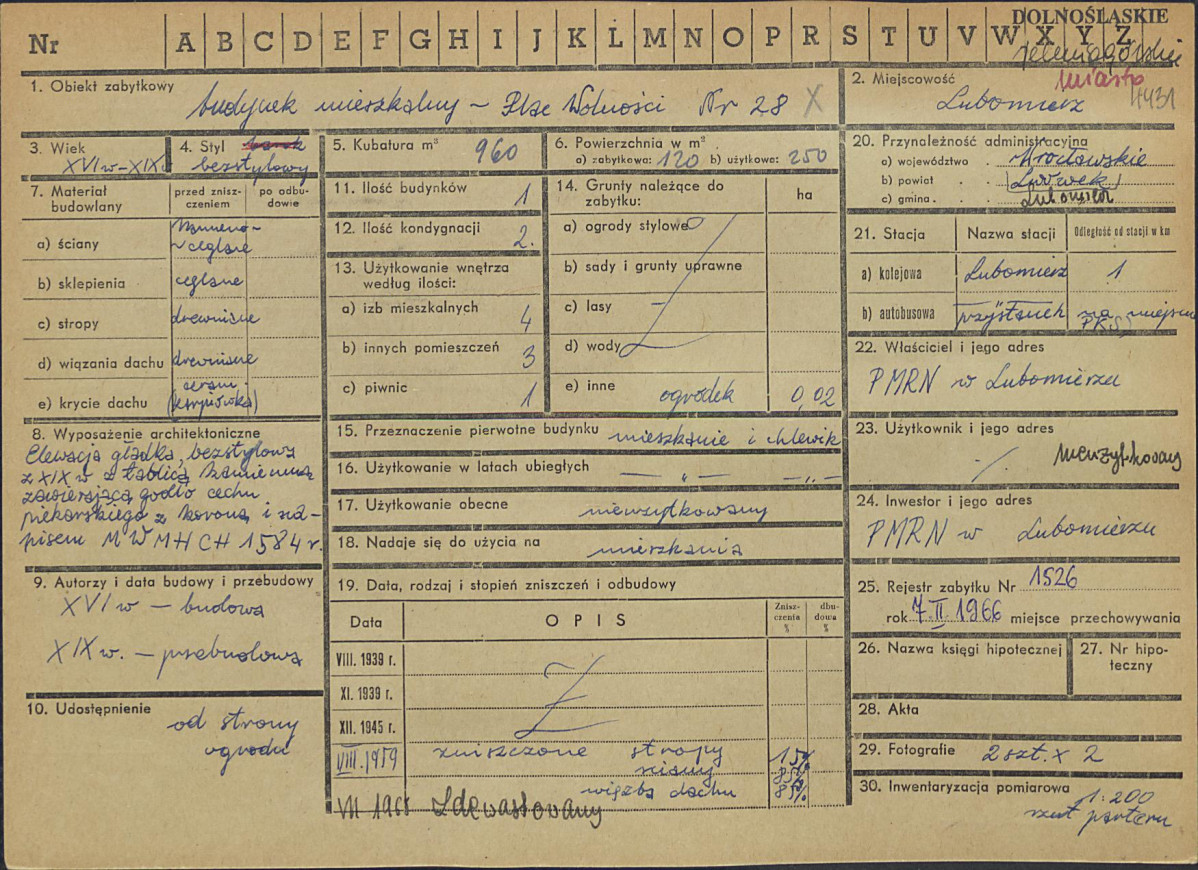 Nr A B C D E F G H I J K L M N O P R S T U V W X Y Z
DOLNOŚLĄSKIE
jeleniogórskie
1. Obiekt zabytkowy
budynek mieszkalny – Plac Wolności Nr 28 X
2. Miejscowość
miasto
Lubomierz
4431
3. Wiek
XVI w – XIX
4. Styl barok
bezstylowy
5. Kubatura m³ 960
6. Powierzchnia w m²
a) zabytkowa: 120 b) użytkowa: 250
7. Materiał budowlany
przed zniszczeniem
po odbudowie
a) ściany
kamienno-
ceglane
b) sklepienia ceglane
c) stropy drewniane
d) wiązania dachu drewniane
e) krycie dachu
ceram.
(karpiówka)
8. Wyposażenie architektoniczne
Elewacja gładka, bezstylowa
z XIX w z tablicą kamienną
zawierającą godło cechu
piekarskiego z koroną i na-
pisem M W M H C H 1584 r.
9. Autorzy i data budowy i przebudowy
XVI w – budowa
XIX w. – przebudowa
10. Udostępnienie
od strony
ogrodu
11. Ilość budynków 1
12. Ilość kondygnacji 2.
13. Użytkowanie wnętrza
według ilości:
a) izb mieszkalnych 4
b) innych pomieszczeń 3
c) piwnic 1
14. Grunty należące do
zabytku:
ha
a) ogrody stylowe
b) sady i grunty uprawne
c) lasy
d) wody
e) inne ogródek 0,02
15. Przeznaczenie pierwotne budynku mieszkanie i chlewik
16. Użytkowanie w latach ubiegłych — „ — — „ —
17. Użytkowanie obecne nieużytkowany
18. Nadaje się do użycia na mieszkania
19. Data, rodzaj i stopień zniszczeń i odbudowy
Data
OPIS
Znisz-
czenia
%
dbu-
dowa
%
VIII. 1939 r.
XI. 1939 r.
XII. 1945 r.
VIII. 1959 zniszczone stropy 15%
ściany 85%
więźba dachu 85%
VII 1965 Zdewastowany
20. Przynależność administracyjna
a) województwo . Wrocławskie
b) powiat . . (Lwówek)
c) gmina . . Lubomierz
21. Stacja
Nazwa stacji
Odległość od stacji w km
a) kolejowa Lubomierz 1
b) autobusowa przystanek na miejscu
PKS
22. Właściciel i jego adres
PMRN w Lubomierzu
23. Użytkownik i jego adres
nieużytkowany
24. Inwestor i jego adres
PMRN w Lubomierzu
25. Rejestr zabytku Nr 1526
rok 7 II 1966 miejsce przechowywania
26. Nazwa księgi hipotecznej
27. Nr hipo-
teczny
28. Akta
29. Fotografie 2 szt. x 2
30. Inwentaryzacja pomiarowa
1:200
rzut parteru